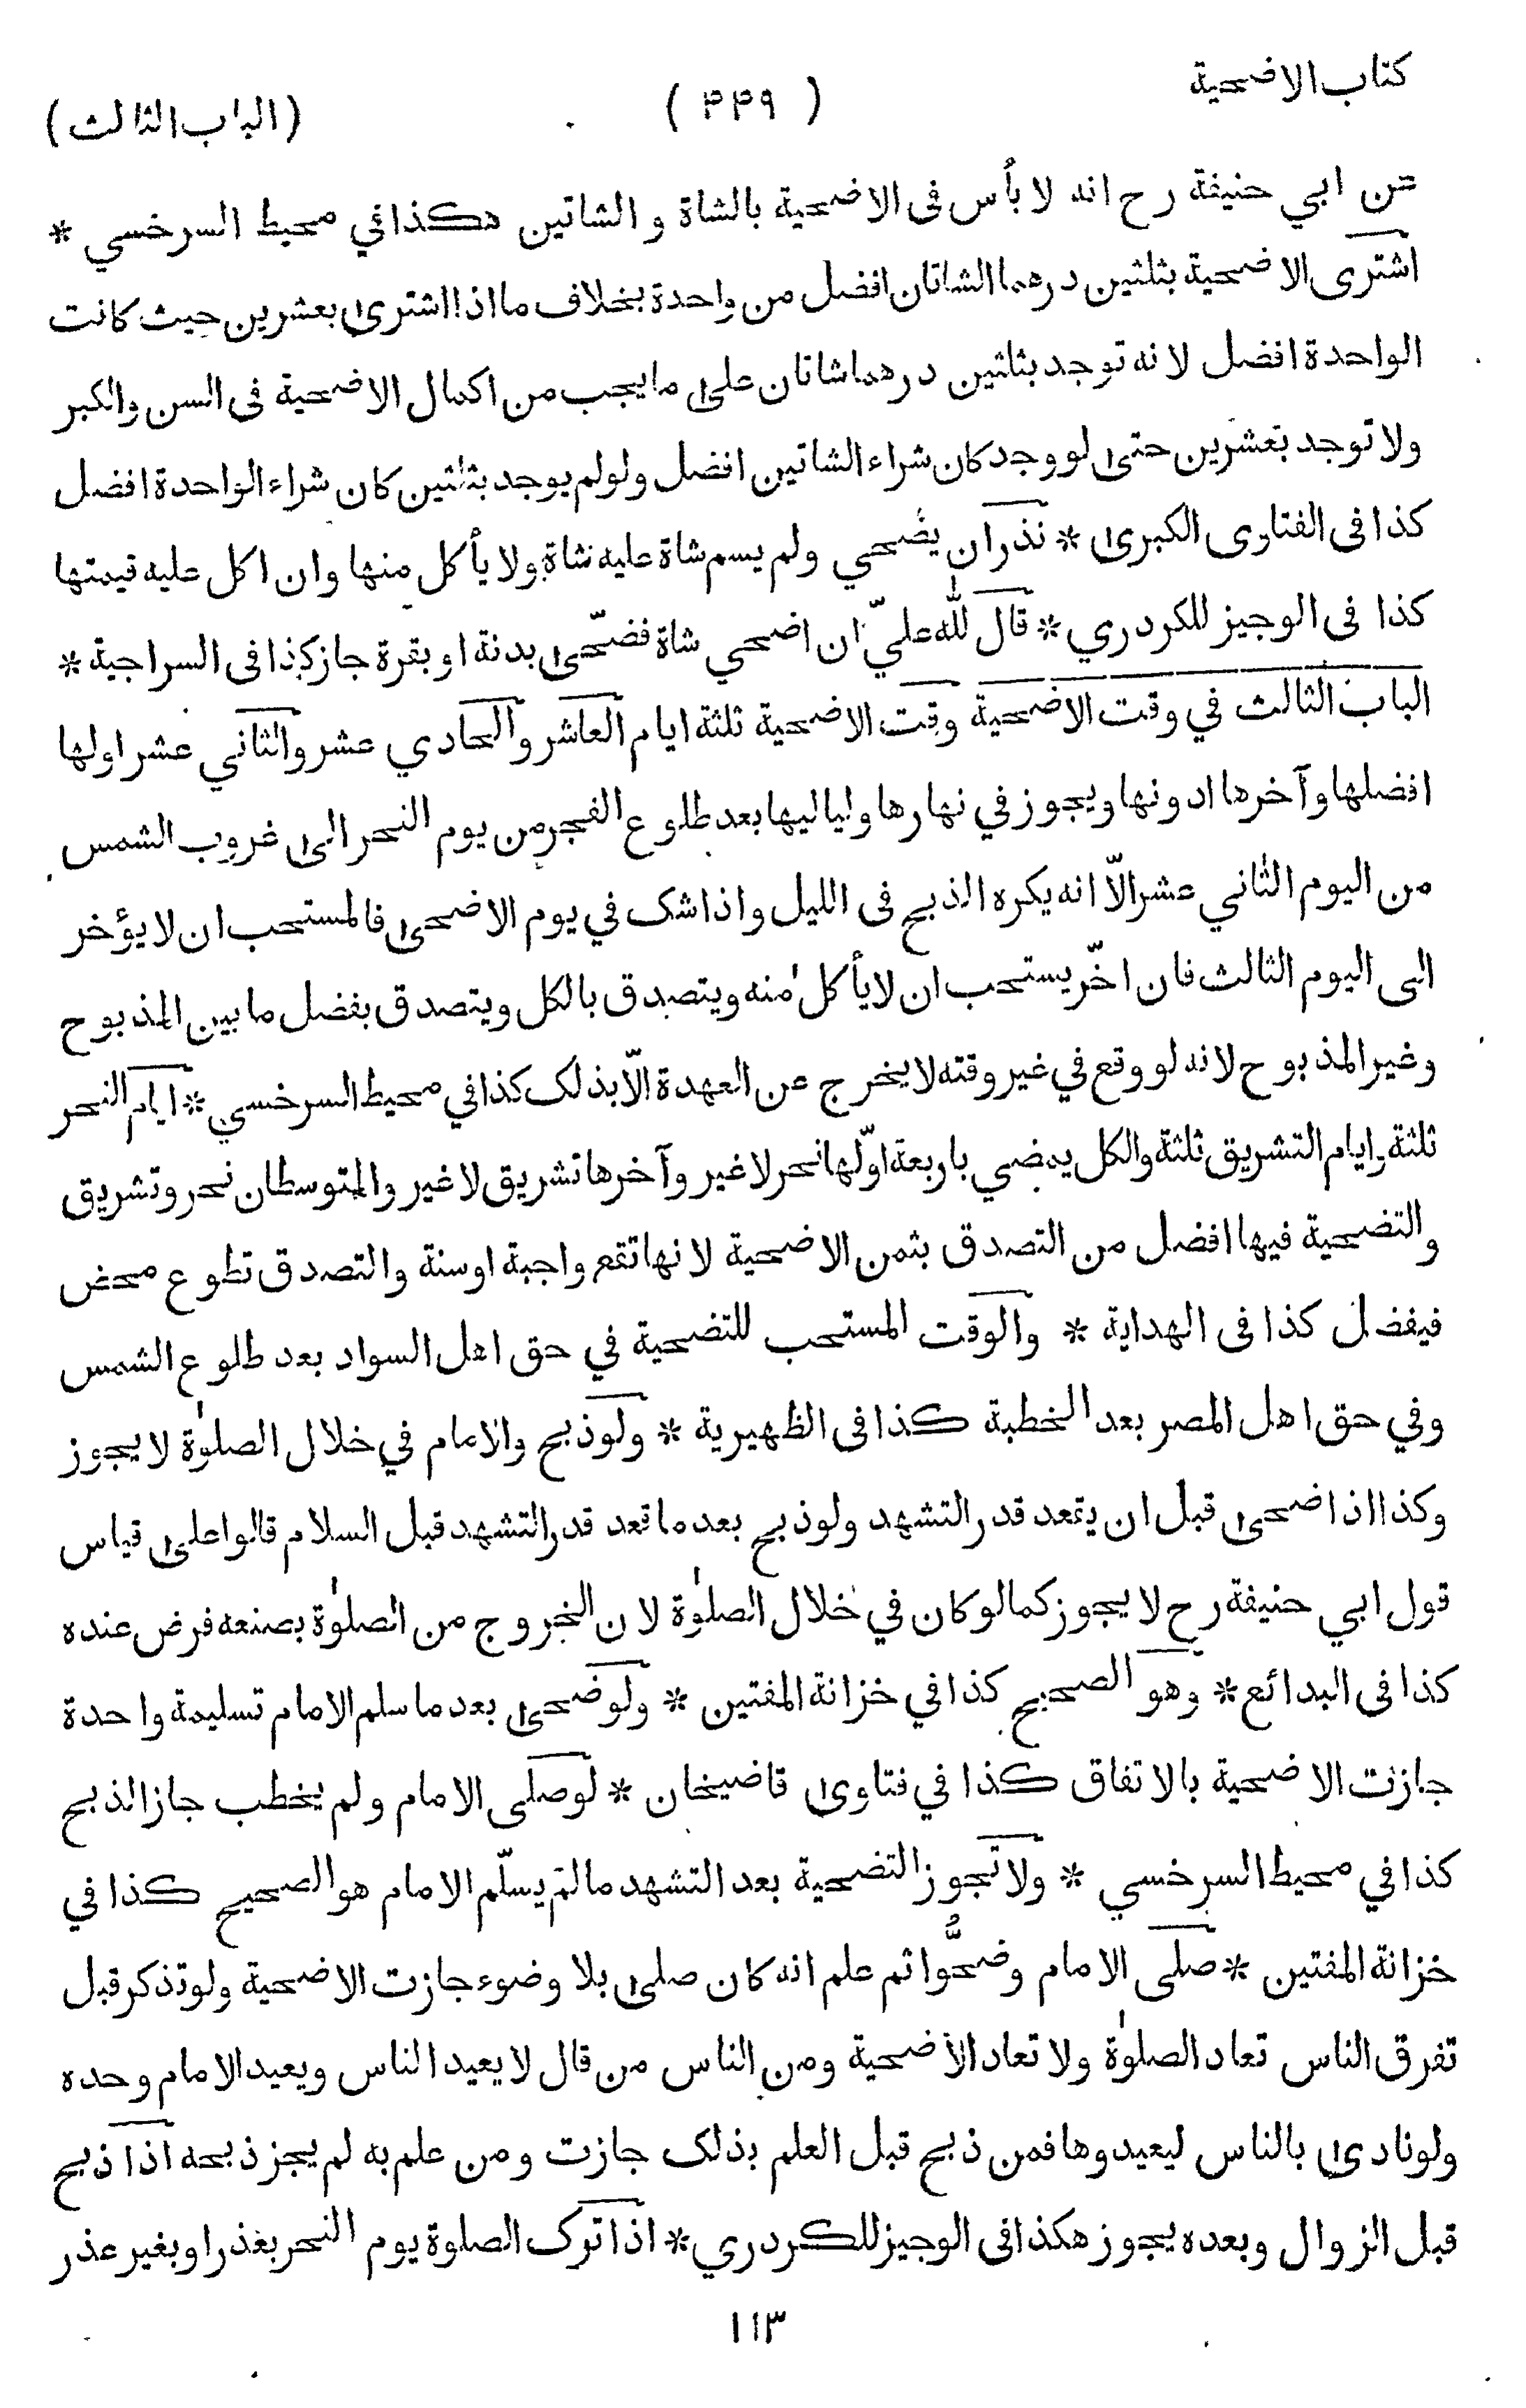 كتاب الاضحية
( ۴۴۹ )
( الباب الثالث )
عن ابي حنيفة رح انه لا بأس فى الاضحية بالشاة و الشاتين هكذا في محيط السرخسي *
اشترى الاضحية بثلثين درهما الشاتان افضل من واحدة بخلاف ما اذا اشترىٰ بعشرين حيث كانت
الواحدة افضل لانه توجد بثلثين درهما شاتان علىٰ ما يجب من اكمال الاضحية فى السن والكبر
ولا توجد بعشرين حتىٰ لو وجد كان شراء الشاتين افضل ولو لم يوجد بثلثين كان شراء الواحدة افضل
كذا فى الفتاوى الكبرىٰ * نذر ان يضحي ولم يسم شاة عليه شاة ولا يأكل منها وان اكل عليه قيمتها
كذا فى الوجيز للكردري * قال لله عليّ ان اضحي شاة فضحّىٰ بدنة او بقرة جاز كذا فى السراجية *
الباب الثالث في وقت الاضحية وقت الاضحية ثلثة ايام العاشر والحادي عشر والثاني عشر اولها
افضلها وآخرها ادونها ويجوز في نهارها ولياليها بعد طلوع الفجر من يوم النحر الىٰ غروب الشمس
من اليوم الثاني عشر الاّ انه يكره الذبح فى الليل واذا شك في يوم الاضحىٰ فالمستحب ان لا يؤخر
الى اليوم الثالث فان اخّر يستحب ان لا يأكل منه ويتصدق بالكل ويتصدق بفضل ما بين المذبوح
وغير المذبوح لانه لو وقع في غير وقته لا يخرج عن العهدة الاّ بذلك كذا في محيط السرخسي * ايام النحر
ثلثة وايام التشريق ثلثة والكل يمضي باربعة اوّلها نحر لا غير وآخرها تشريق لا غير والمتوسطان نحر وتشريق
والتضحية فيها افضل من التصدق بثمن الاضحية لانها تقع واجبة او سنة والتصدق تطوع محض
فيفضل كذا فى الهداية * والوقت المستحب للتضحية في حق اهل السواد بعد طلوع الشمس
وفي حق اهل المصر بعد الخطبة كذا فى الظهيرية * ولو ذبح والامام في خلال الصلوٰة لا يجوز
وكذا اذا ضحىٰ قبل ان يقعد قدر التشهد ولو ذبح بعد ما قعد قدر التشهد قبل السلام قالوا علىٰ قياس
قول ابي حنيفة رح لا يجوز كما لو كان في خلال الصلوٰة لان الخروج من الصلوٰة بصنعه فرض عنده
كذا فى البدائع * وهو الصحيح كذا في خزانة المفتين * ولو ضحىٰ بعد ما سلم الامام تسليمة واحدة
جازت الاضحية بالاتفاق كذا في فتاوىٰ قاضيخان * لو صلى الامام ولم يخطب جاز الذبح
كذا في محيط السرخسي * ولا تجوز التضحية بعد التشهد ما لم يسلّم الامام هو الصحيح كذا في
خزانة المفتين * صلى الامام وضحُّوا ثم علم انه كان صلىٰ بلا وضوء جازت الاضحية ولو تذكر قبل
تفرق الناس تعاد الصلوٰة ولا تعاد الاضحية ومن الناس من قال لا يعيد الناس ويعيد الامام وحده
ولو نادىٰ بالناس ليعيدوها فمن ذبح قبل العلم بذلك جازت ومن علم به لم يجز ذبحه اذا ذبح
قبل الزوال وبعده يجوز هكذا فى الوجيز للكردري * اذا ترك الصلوة يوم النحر بعذر او بغير عذر
۱۱۳